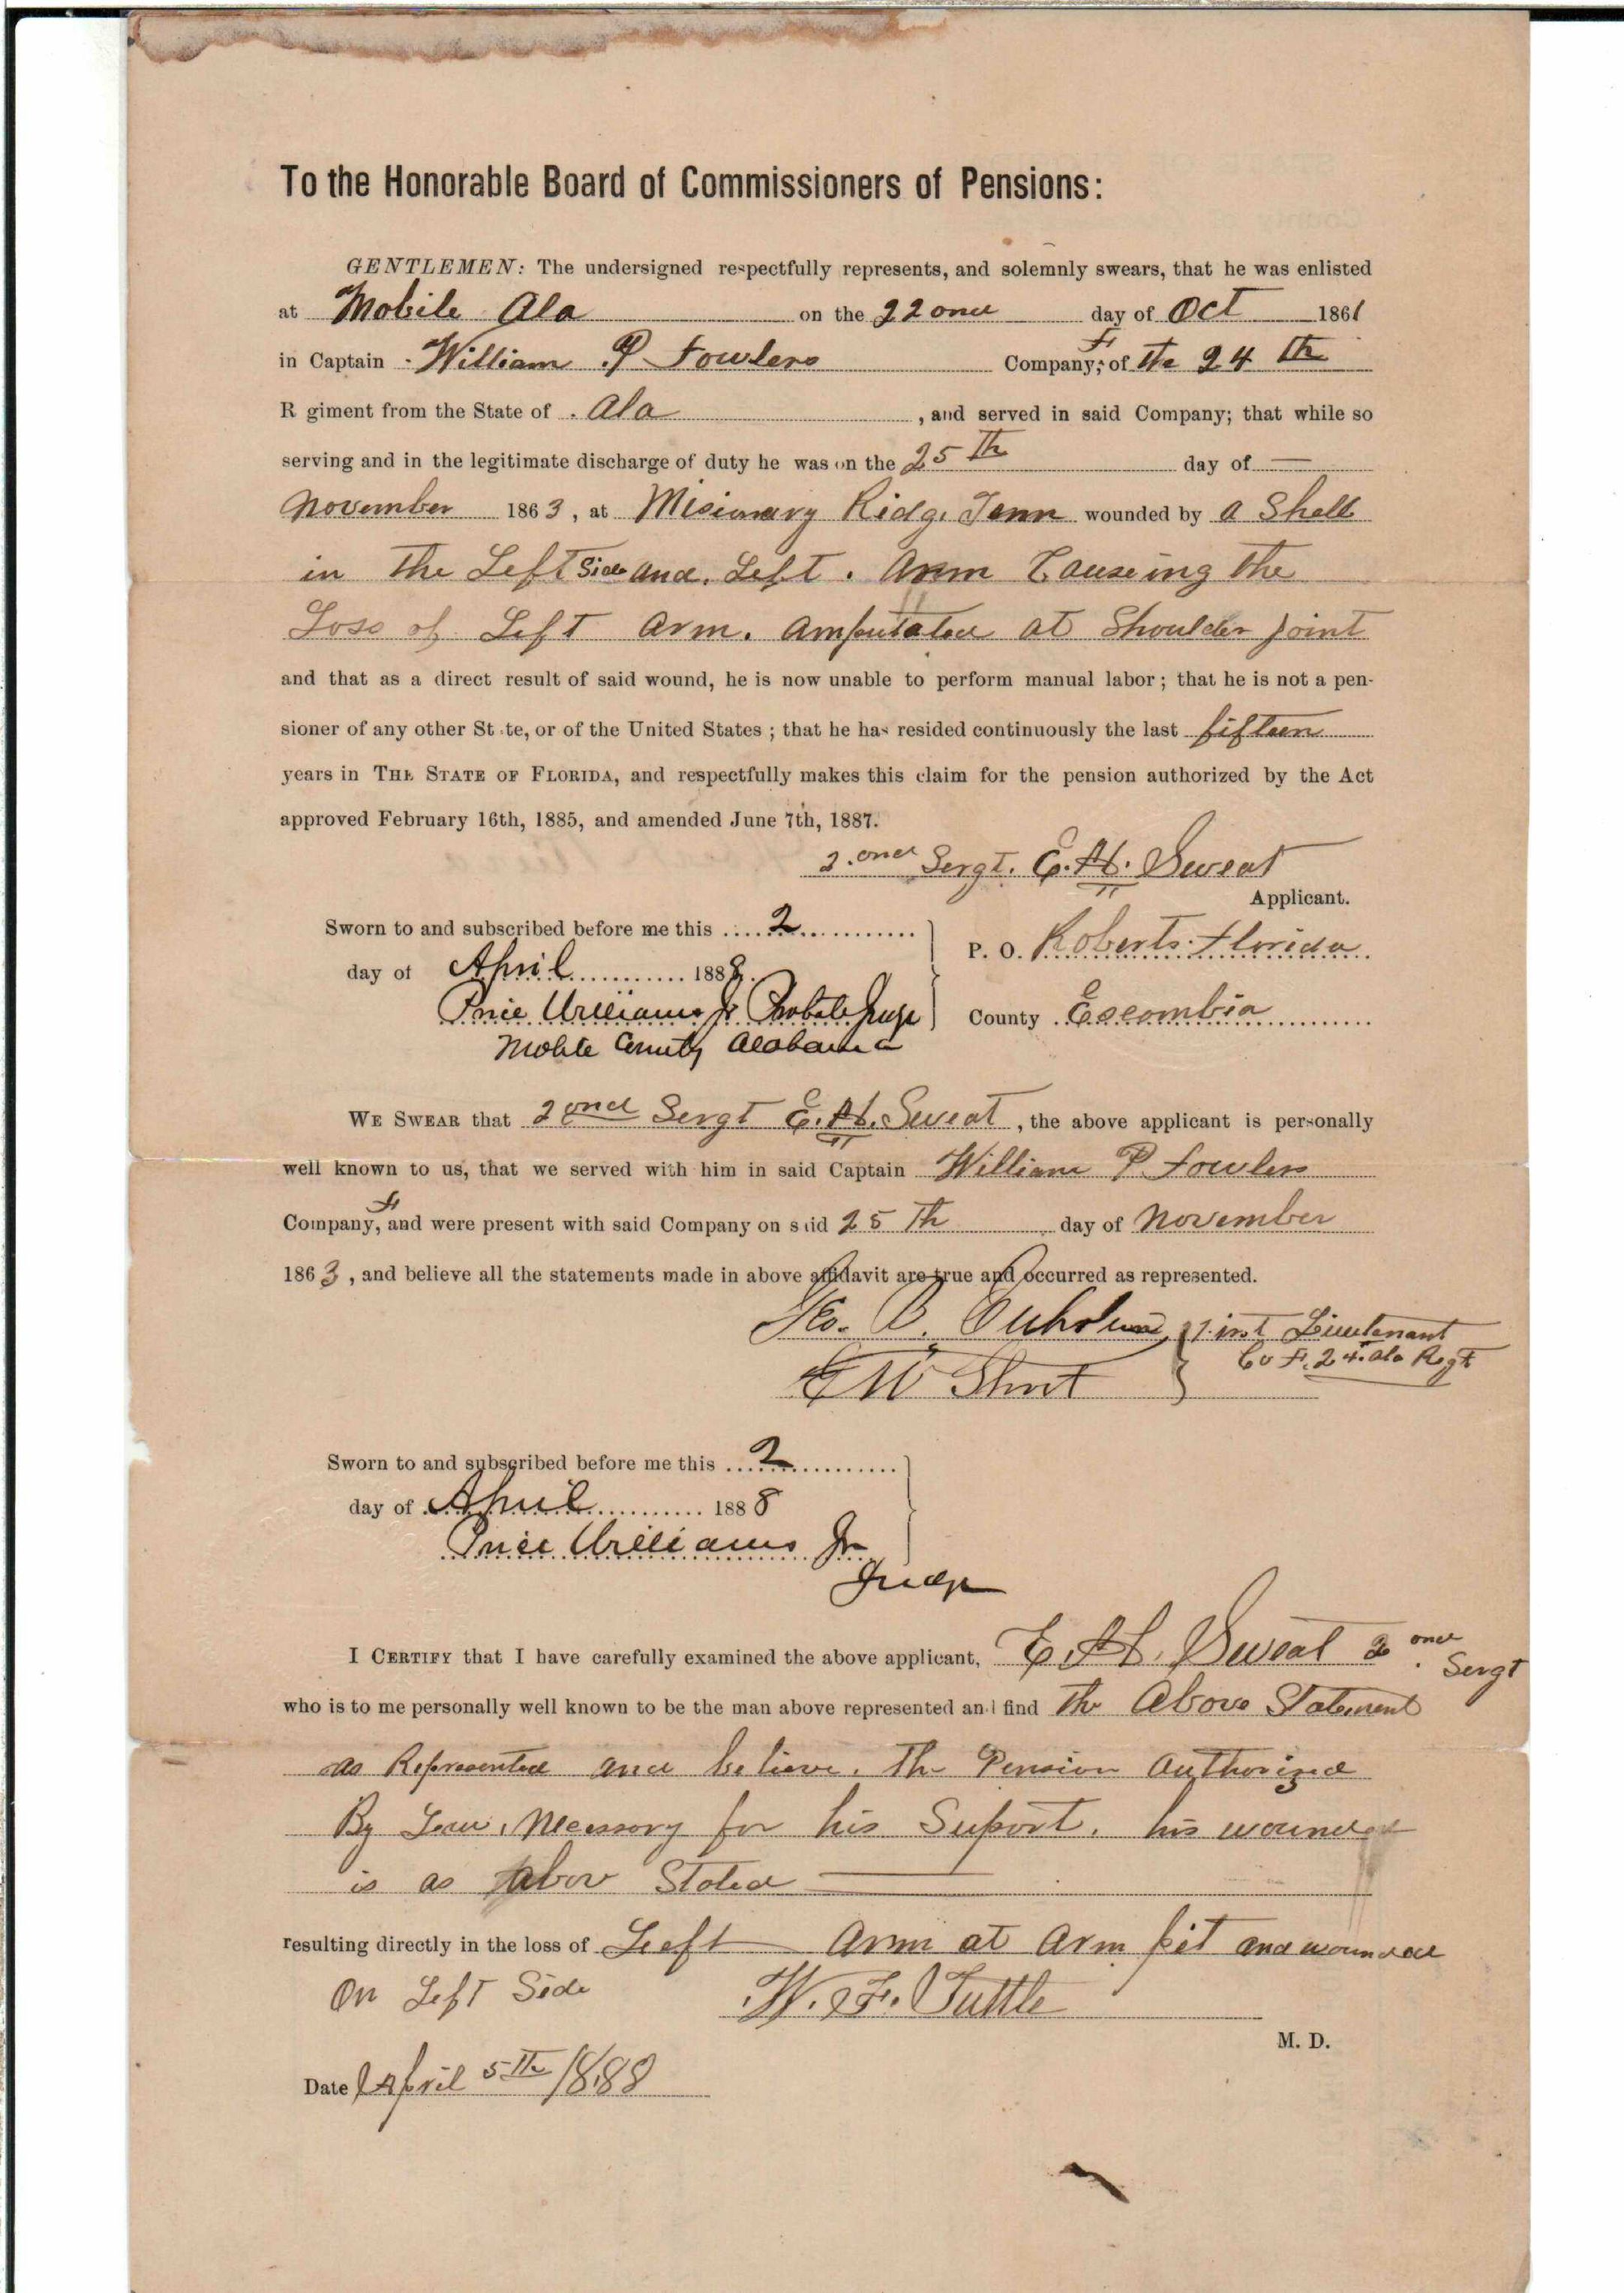 To the Honorable Board of Commissioners of Pensions:
GENTLEMEN: The undersigned respectfully represents, and solemnly swears, that he was enlisted
at Mobile Ala on the 22ond day of Oct 1861
in Captain William P Fowlers Company, F of the 24 th
R giment from the State of Ala, and served in said Company; that while so
serving and in the legitimate discharge of duty he was on the 25 Th day of —
November 1863, at Misionary Ridge, Tenn wounded by a Shell
in the Left Side and Left Arm Causeing the
Loss of Left Arm. Amputated at Shoulder joint
and that as a direct result of said wound, he is now unable to perform manual labor; that he is not a pen-
sioner of any other St te, or of the United States; that he has resided continuously the last fifteen
years in THE STATE OF FLORIDA, and respectfully makes this claim for the pension authorized by the Act
approved February 16th, 1885, and amended June 7th, 1887.
2.ond Sergt. E.H. Sweat
Applicant.
Sworn to and subscribed before me this 2
day of April 1888
Price Williams Jr Probate Judge
Mobile County Alabama
P. O. Roberts Florida
County Escombia
WE SWEAR that 2ond Sergt E.H. Sweat, the above applicant is personally
well known to us, that we served with him in said Captain William P Fowlers
Company, F and were present with said Company on s id 25 Th day of November
1863, and believe all the statements made in above affidavit are true and occurred as represented.
Geo. B. First Lieutenant
Co F. 24. Ala Regt
E W Short
Sworn to and subscribed before me this 2
day of April 1888
Price Williams Jr
Judge
I CERTIFY that I have carefully examined the above applicant, E.H. Sweat 2ond Sergt
who is to me personally well known to be the man above represented and find The Above Statement
as Represented and believe. The Pension Authorized
By Law, Necessory for his Suport. his wounded
is as Abov Stated
resulting directly in the loss of Left Arm at Arm pit and wounded
On Left Side W. F. Tuttle
M. D.
Date April 5th 1888